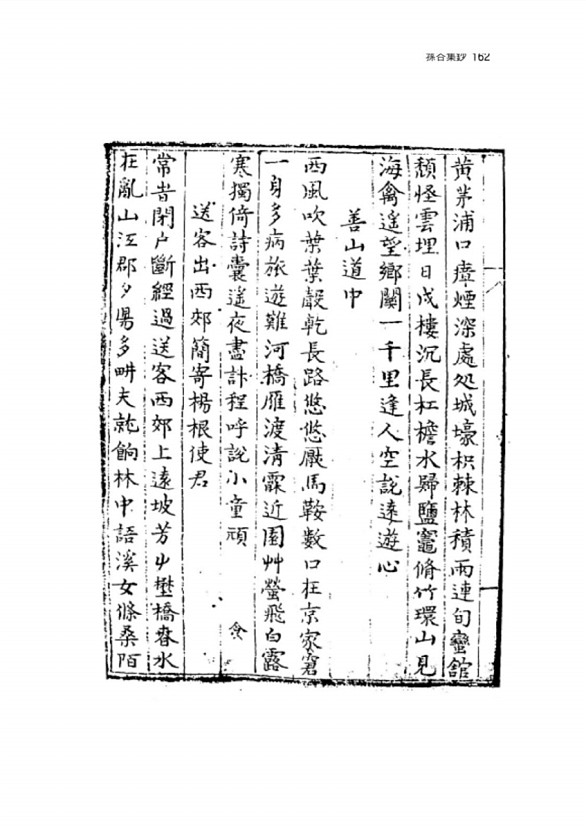 蓀谷集鈔 162
黃茅浦口瘴煙深處処城壕枳棘林積雨連旬蠻館
頹怪雲埋日戍樓沉長杠檐水歸鹽竈脩竹環山見
海禽遙望鄉關一千里逢人空說遠遊心
善山道中
西風吹葉葉聲乾長路悠悠厭馬鞍數口在京家窘
一身多病旅遊難河橋雁渡清霜近園艸螢飛白露
寒獨倚詩囊遙夜盡計程呼說小童頑
送客出西郊簡寄楊根使君
常昔閉户斷經過送客西郊上遠坡芳艸壄橋春水
在亂山江郡夕陽多畊夫就餉林中語溪女條桑陌